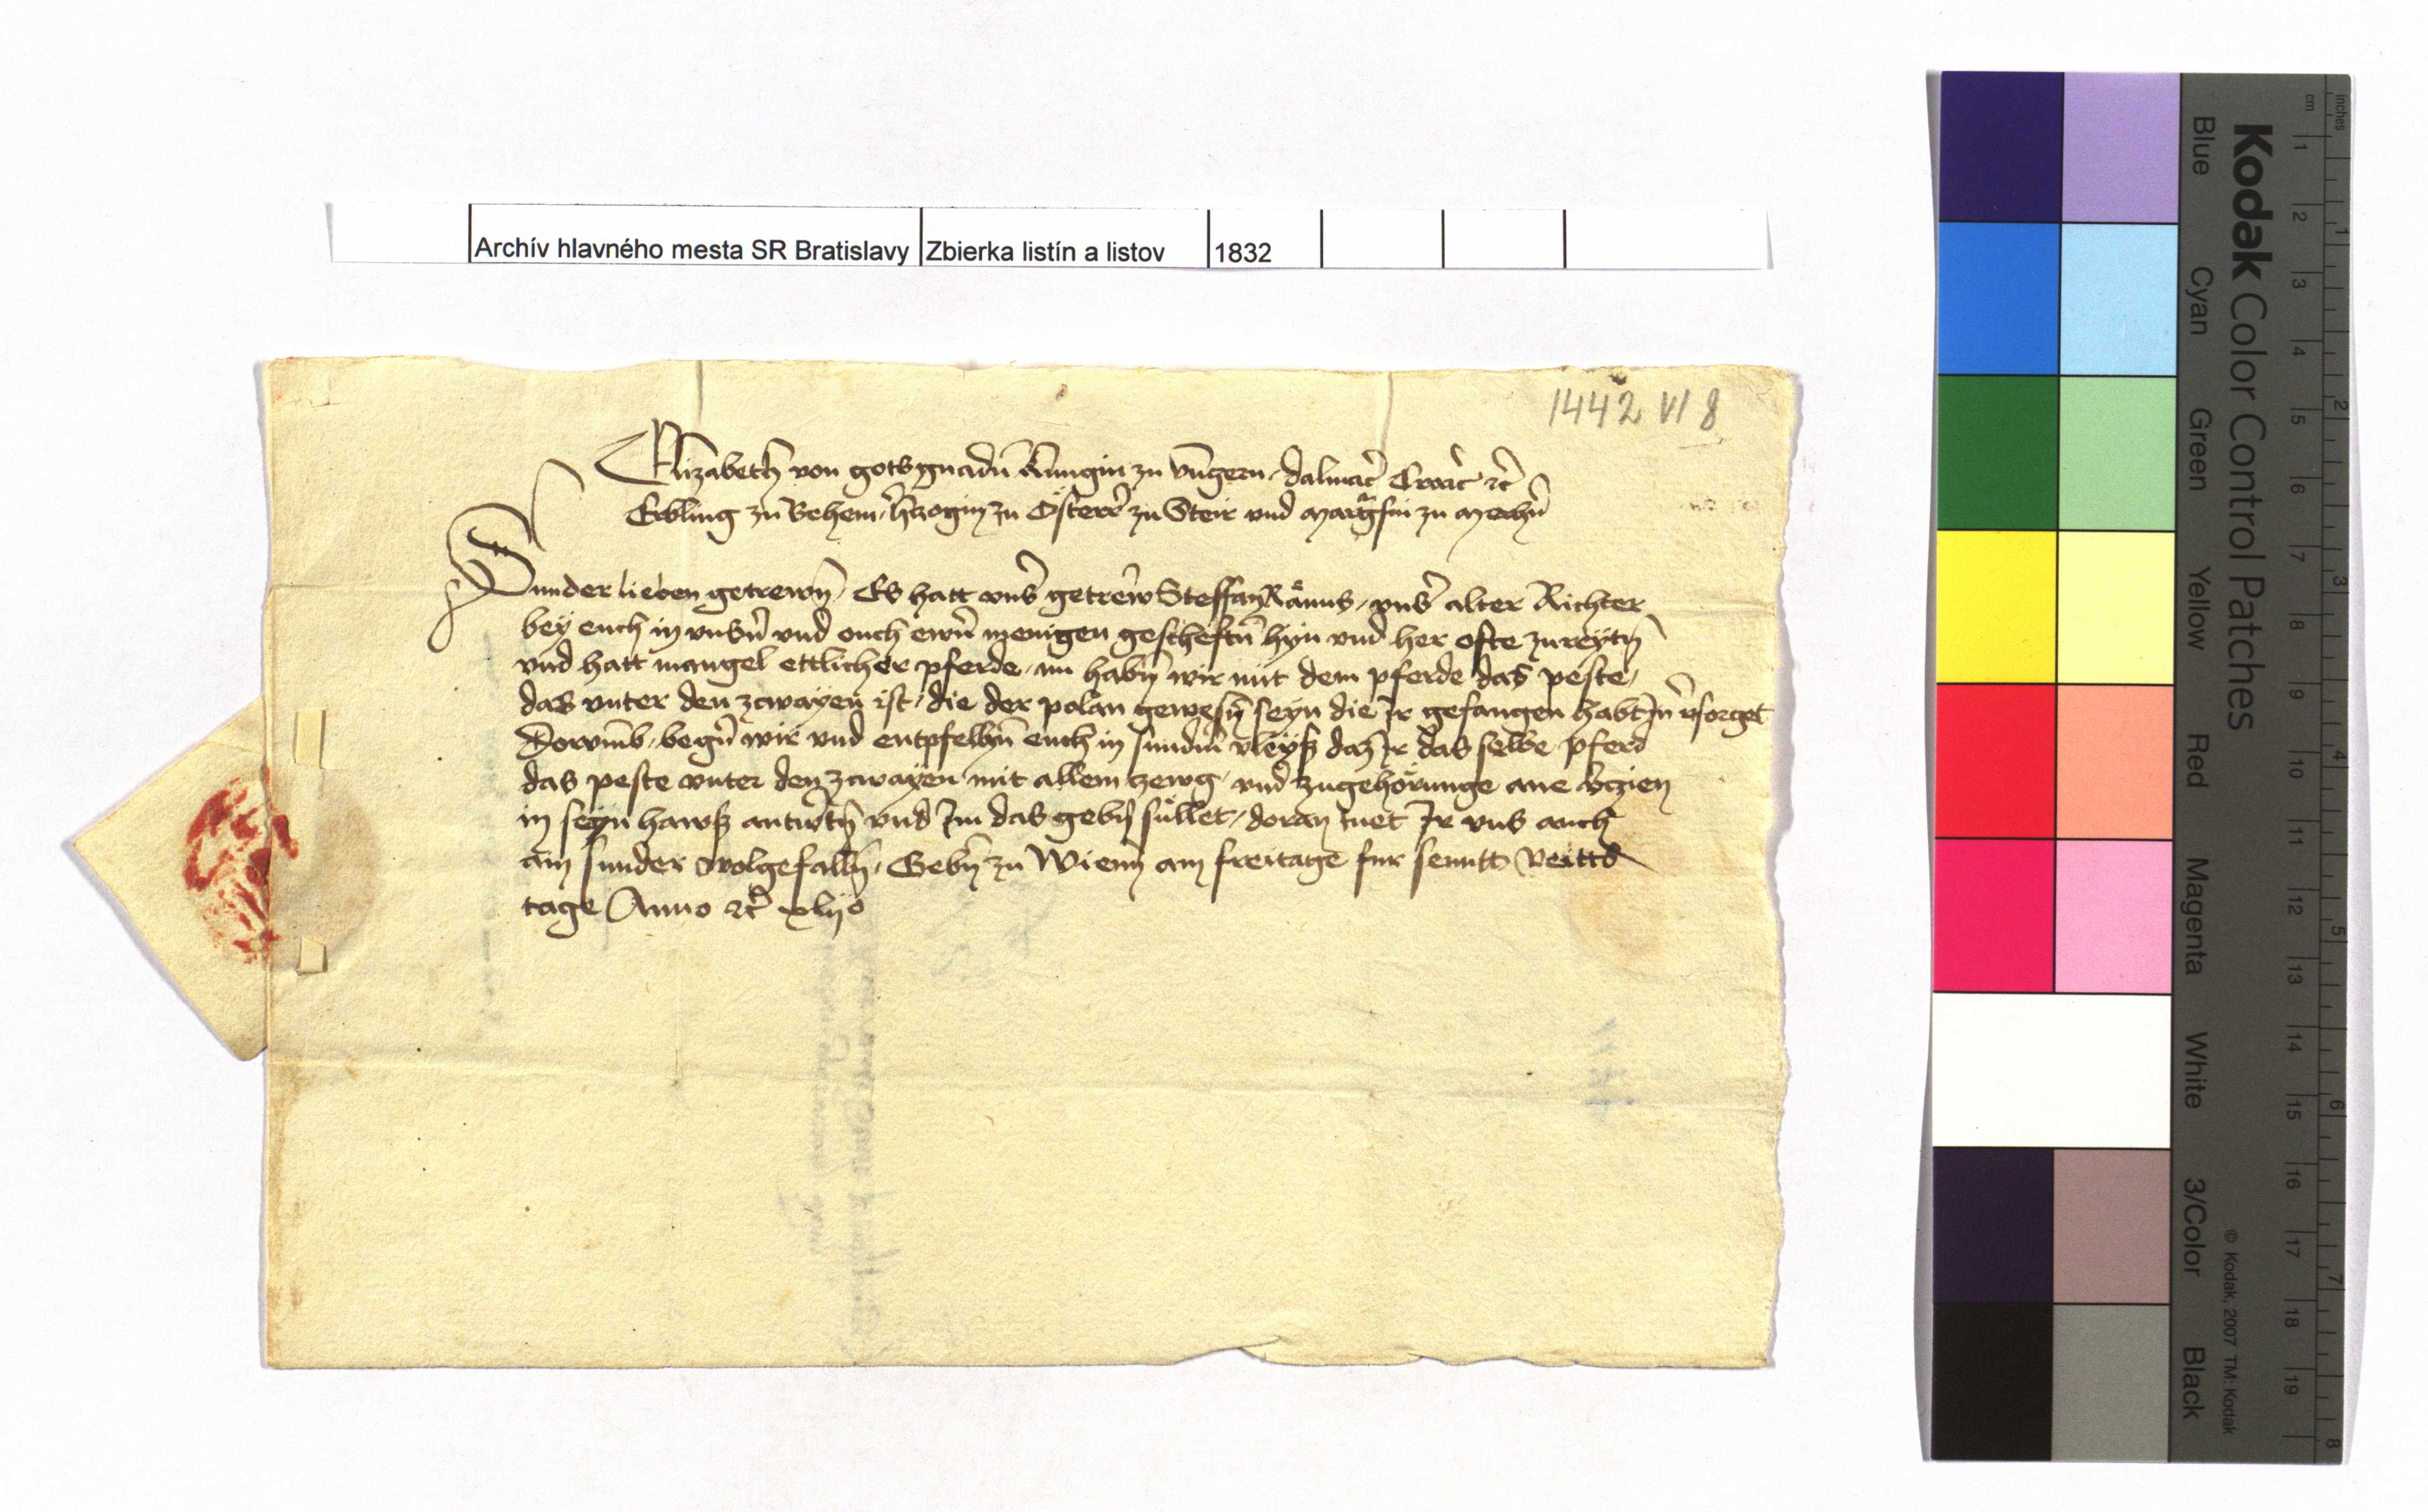 Archív hlavného mesta SR Bratislavy Zbierka listín a listov 1832
1442 VI 8
Elizabeth von gots gnadn̄ Kunigin zu Vngern, dalmac̄ Croac̄ ꝛc̄
Erbling zu Behem, h̄czogin zu Österr̄ zu Steir vnd Margfin zu Merhn̄
Sunder lieben getrewn̄, Es hatt vns̄ getrew̄ Steffan Ranus, vns̄ alter Richter
bey euch in vnsn̄ vnd ouch ewrn̄ menigen gescheftn̄ hyn vnd her ofte zu reytn̄
vnd hatt mangel ettlicher pferde, nu habn̄ wir mit dem pferde das peste,
das vnter den zwayen ist, die der polan gewesn̄ seyn die Ir gefangen habt In v̄sorget
Dorvmb, begern̄ wir vnd entpfelhn̄ euch in sundm̄ vleyß daz Ir das selbe pferd
das peste vnter den zwayen mit allem zewg, vnd zugehörunge ane v̄czien
in seyn hawß antwrtn̄ vnd Im das gebn̄ süllet, doran tuet Ir vns auch
ain sunder wolgefalln̄, Gebn̄ zu Wienn am freitage fur sennt Veitts
tage Anno ꝛc̄ xlijo
Kodak Color Control Patches
Blue Cyan Green Yellow Red Magenta White 3/Color Black
© Kodak, 2007 TM: Kodak
cm 1 2 3 4 5 6 7 8 9 10 11 12 13 14 15 16 17 18 19
inches 1 2 3 4 5 6 7 8